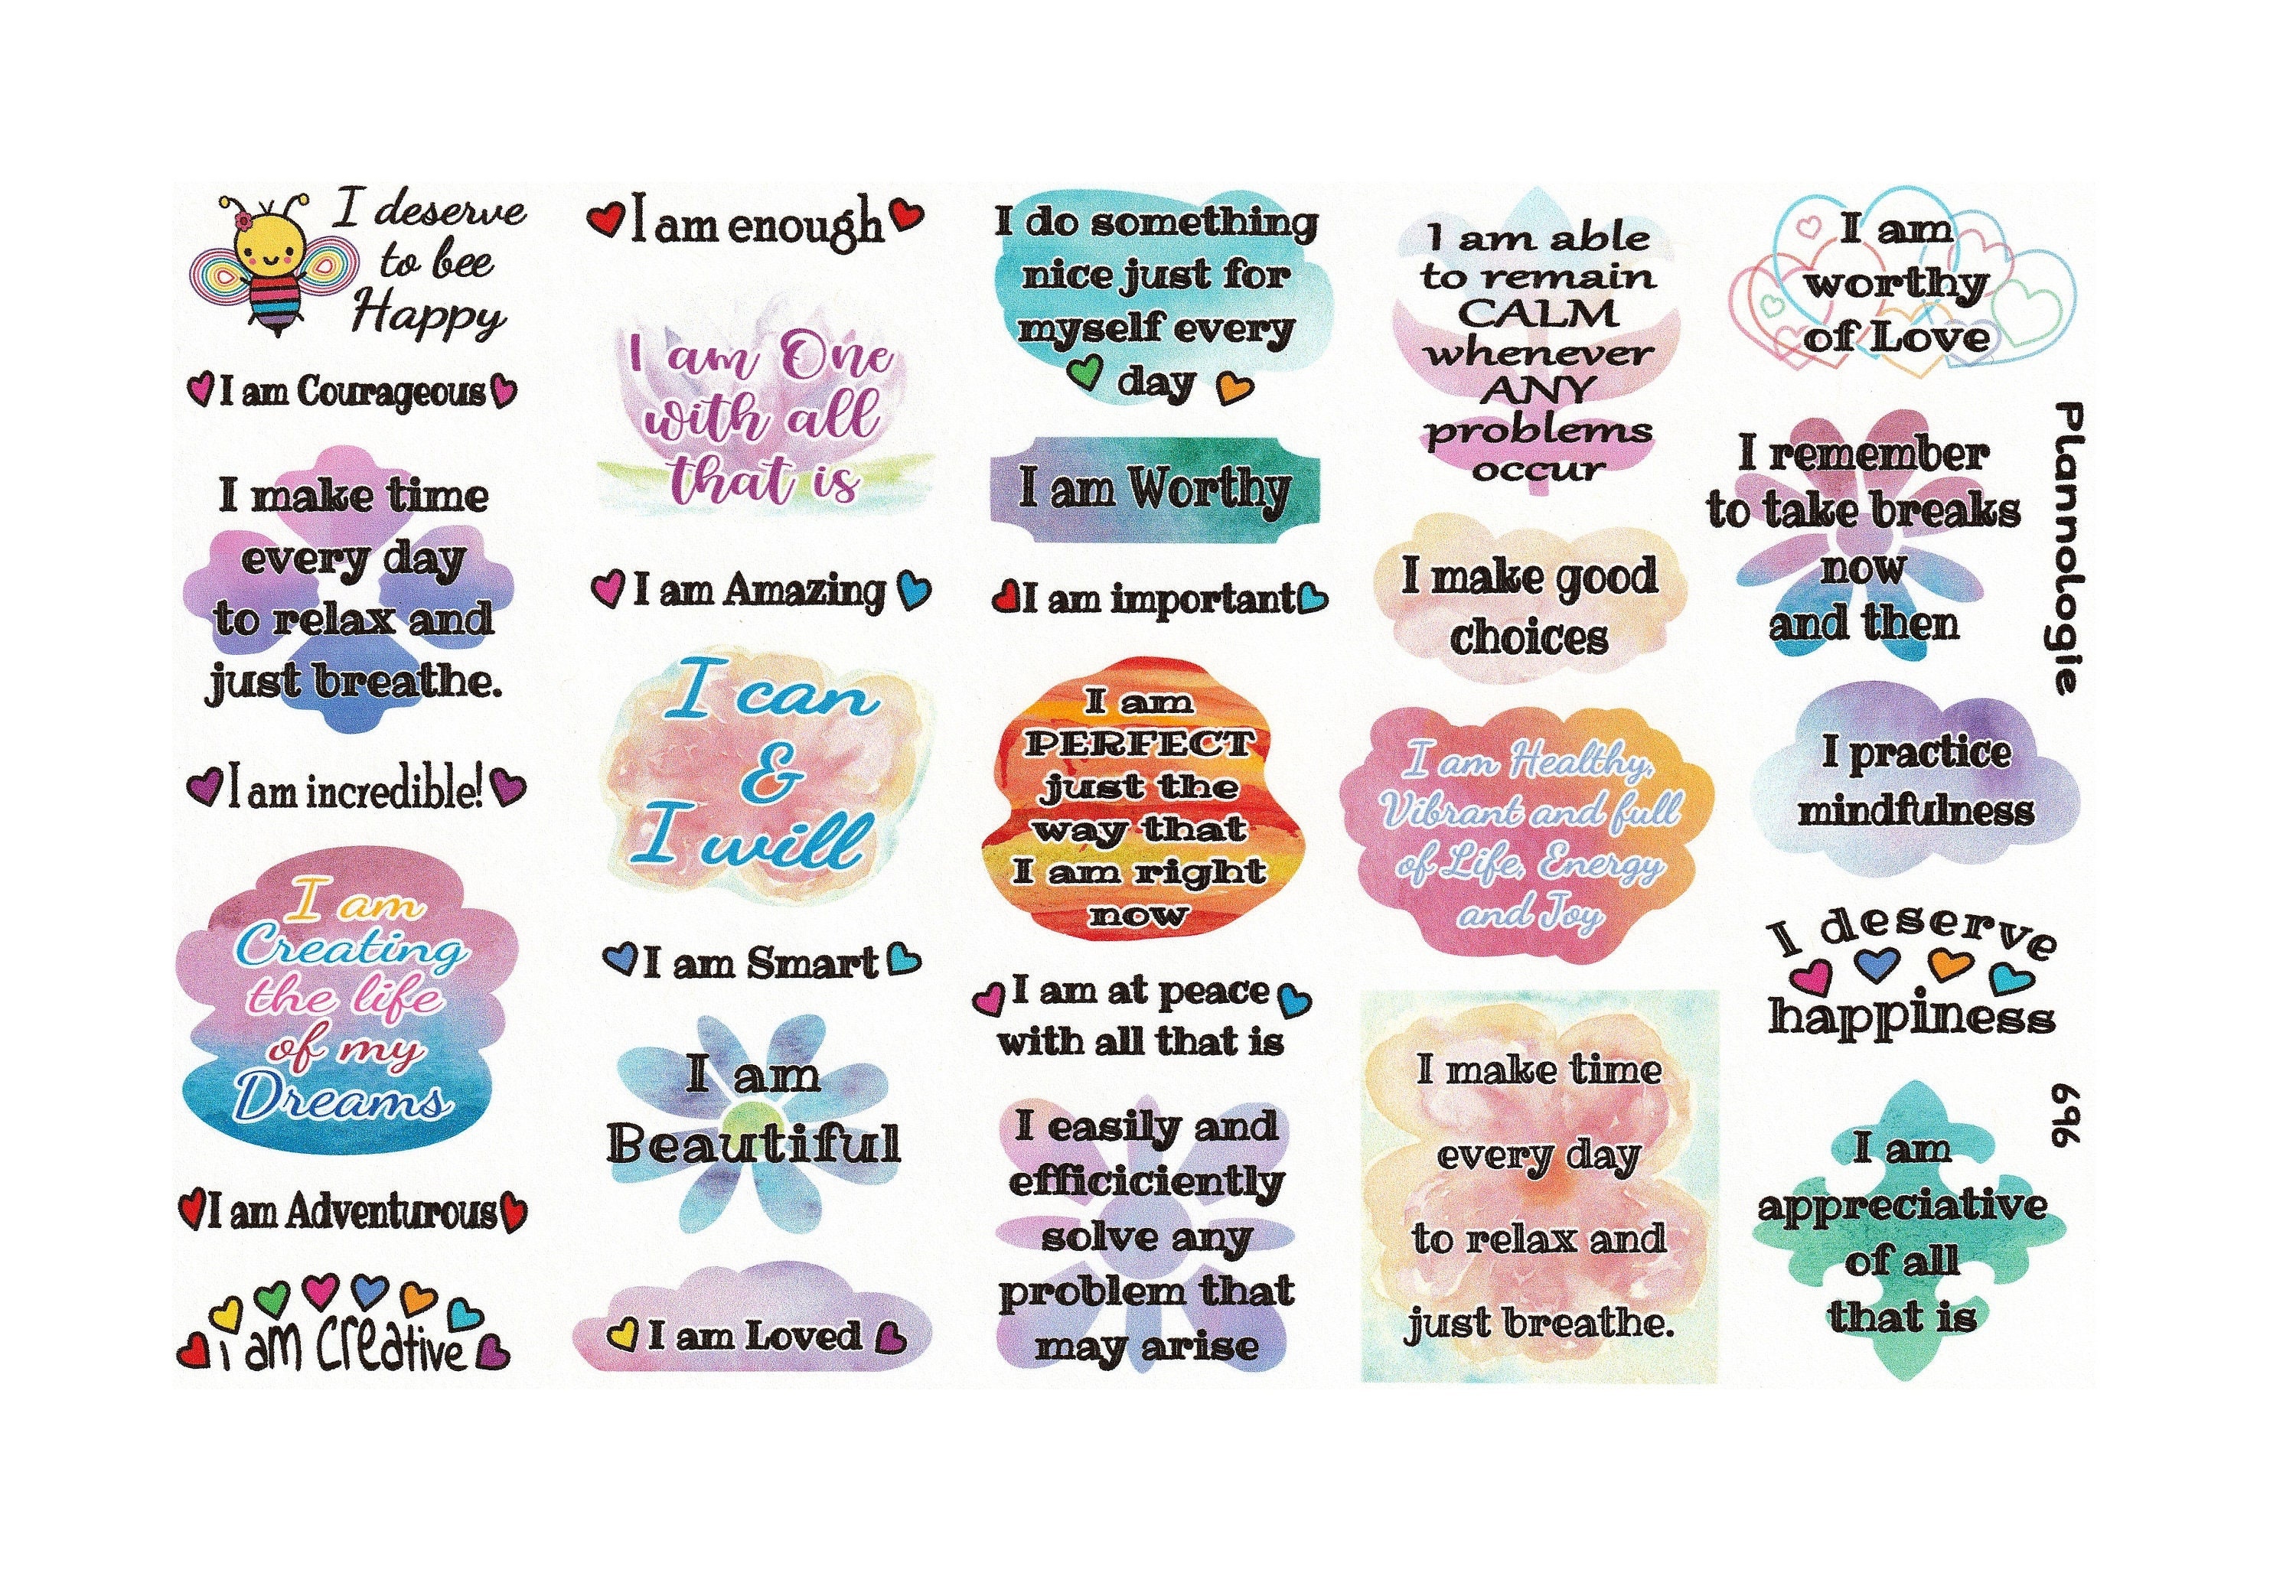 I deserve
to bee
Happy
I am Courageous
I make time
every day
to relax and
just breathe.
I am incredible!
I am
Creating
the life
of my
Dreams
I am Adventurous
i am creative
I am enough
I am One
with all
that is
I am Amazing
I can
&
I will
I am Smart
I am
Beautiful
I am Loved
I do something
nice just for
myself every
day
I am Worthy
I am important
I am
PERFECT
just the
way that
I am right
now
I am at peace
with all that is
I easily and
efficiciently
solve any
problem that
may arise
I am able
to remain
CALM
whenever
ANY
problems
occur
I make good
choices
I am Healthy,
Vibrant and full
of Life, Energy
and Joy
I make time
every day
to relax and
just breathe.
I am
worthy
of Love
I remember
to take breaks
now
and then
I practice
mindfulness
I deserve
happiness
I am
appreciative
of all
that is
Plannologie
696